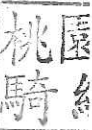 桃園
騎